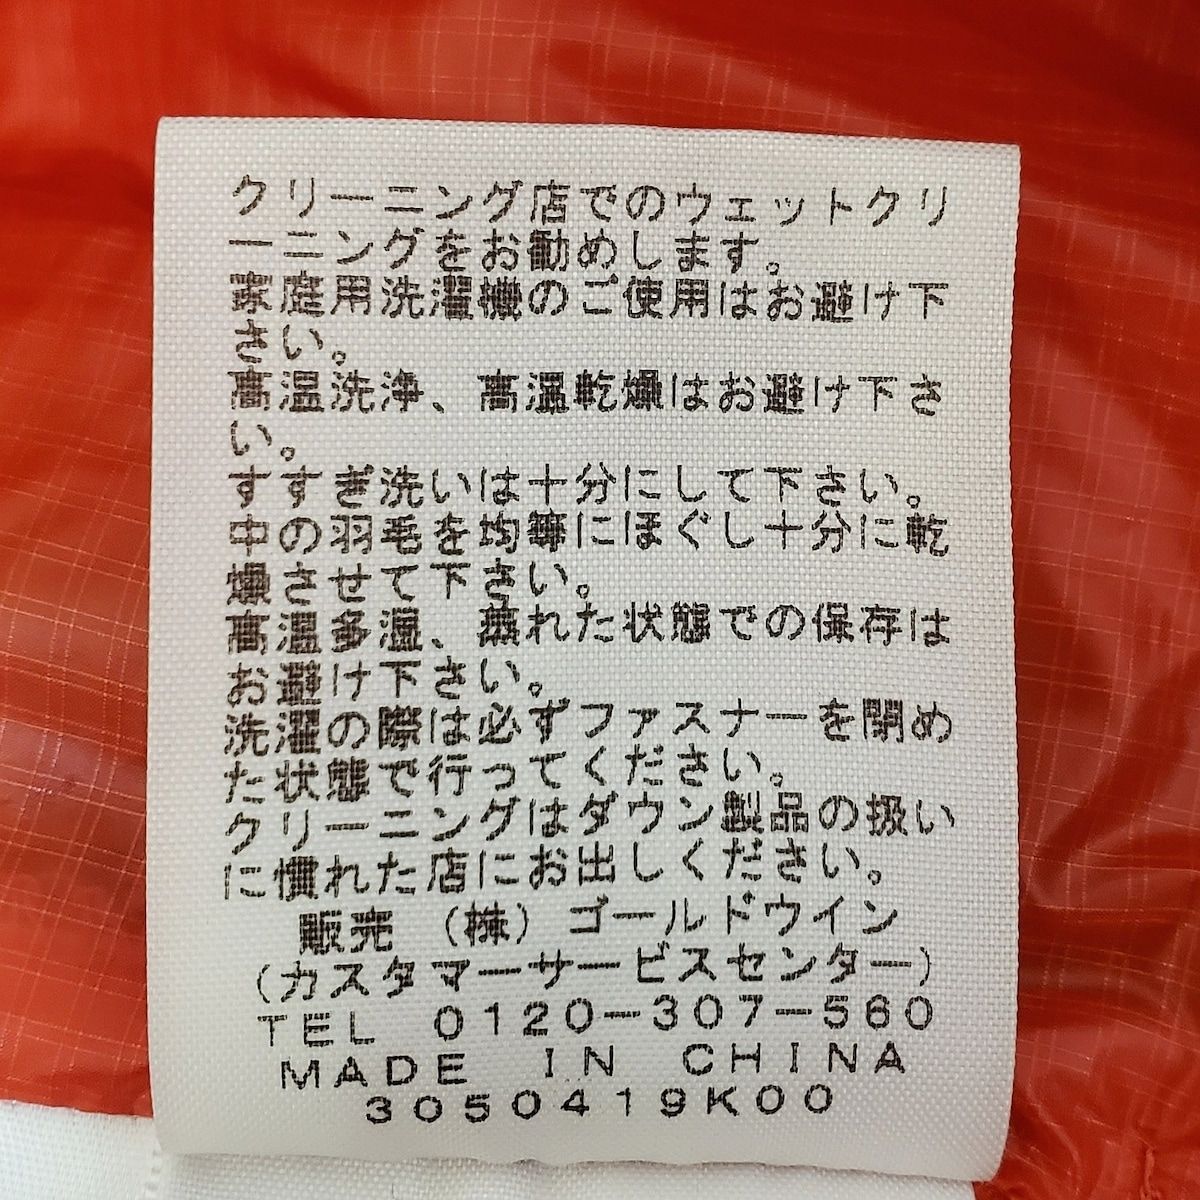 クリーニング店でのウェットクリ
ーニングをお勧めします。
家庭用洗濯機のご使用はお避け下
さい。
高温洗浄、高温乾燥はお避け下さ
い。
すすぎ洗いは十分にして下さい。
中の羽毛を均等にほぐし十分に乾
燥させて下さい。
高温多湿、蒸れた状態での保存は
お避け下さい。
洗濯の際は必ずファスナーを閉め
た状態で行ってください。
クリーニングはダウン製品の扱い
に慣れた店にお出しください。
販売 (株) ゴールドウイン
(カスタマーサービスセンター)
TEL 0120-307-560
MADE IN CHINA
3050419K00